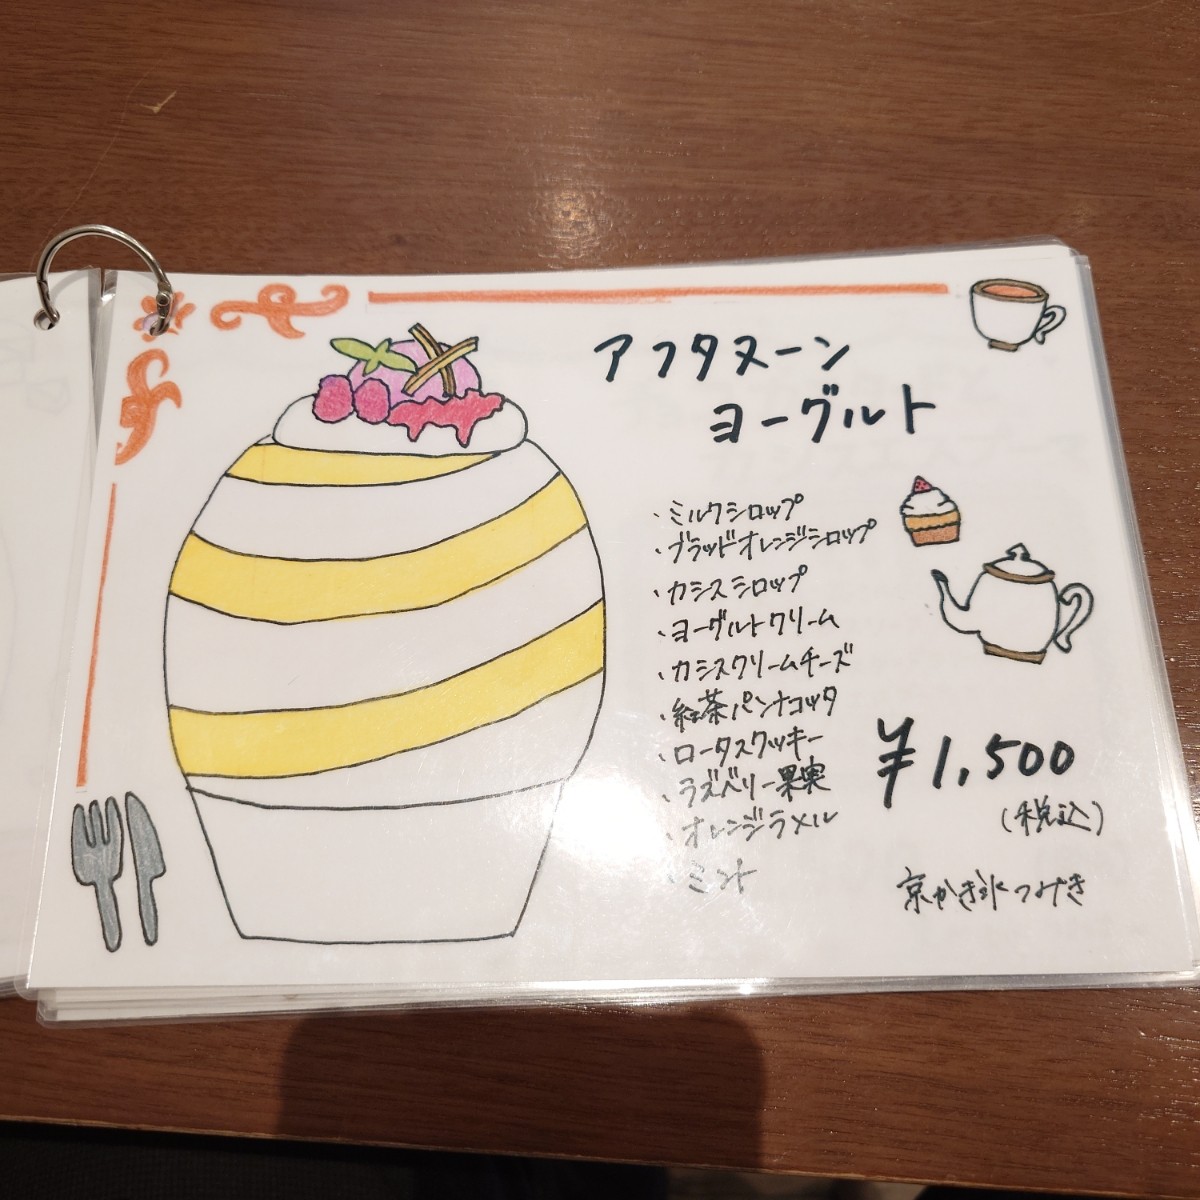 アフタヌーン
ヨーグルト
・ミルクシロップ
・ブラッドオレンジシロップ
・カシスシロップ
・ヨーグルトクリーム
・カシスクリームチーズ
・紅茶パンナコッタ
・ロータスクッキー
・ラズベリー果実
・オレンジラメル
・ミント
¥1,500
(税込)
京かき氷つみき